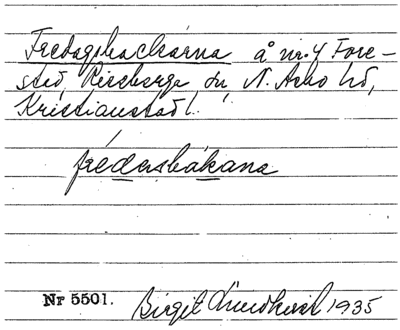 Fredagsbackarna å nr. 4 Fore-
stad, sn, N. Åsbo hd,
Kristianstad l.
frédersbákana
Nr 5501.
Birgit Lundkvist 1935